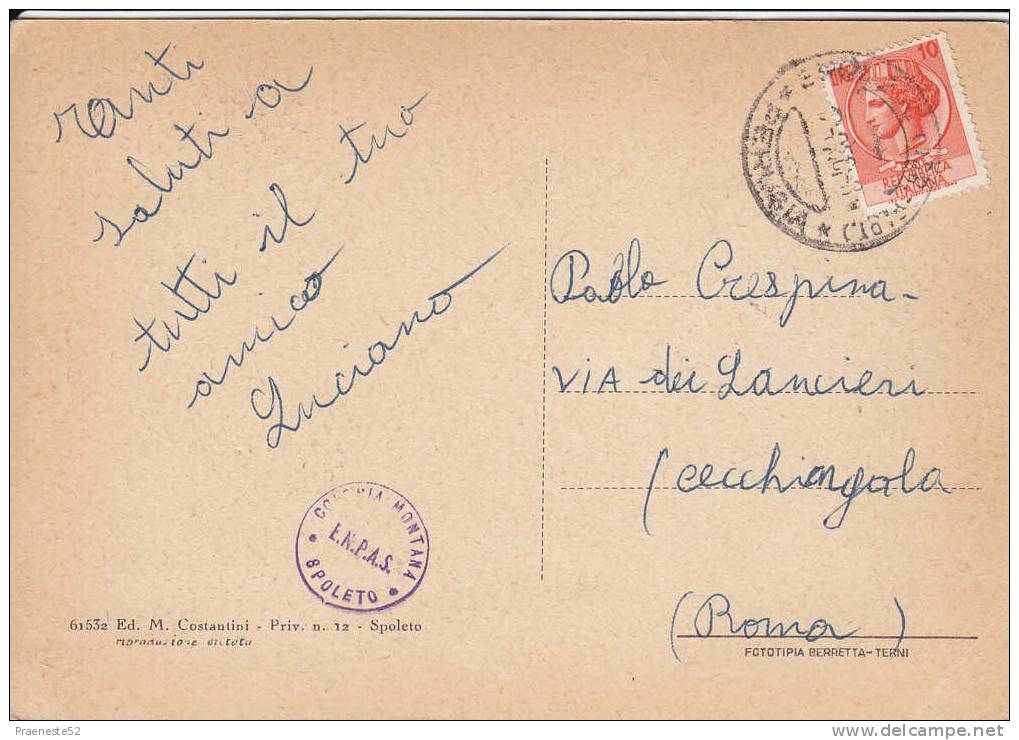 Tanti
saluti a
tutti il tuo
amico
Luciano
COLONIA MONTANA
E.N.P.A.S.
SPOLETO
61532 Ed. M. Costantini - Priv. n. 12 - Spoleto
riproduzione vietata
10
REPUBBLICA
ITALIANA
Pablo Crespina -
VIA dei Lancieri
Cecchingola
(Roma)
FOTOTIPIA BERRETTA-TERNI
Praeneste52
delcampe.net